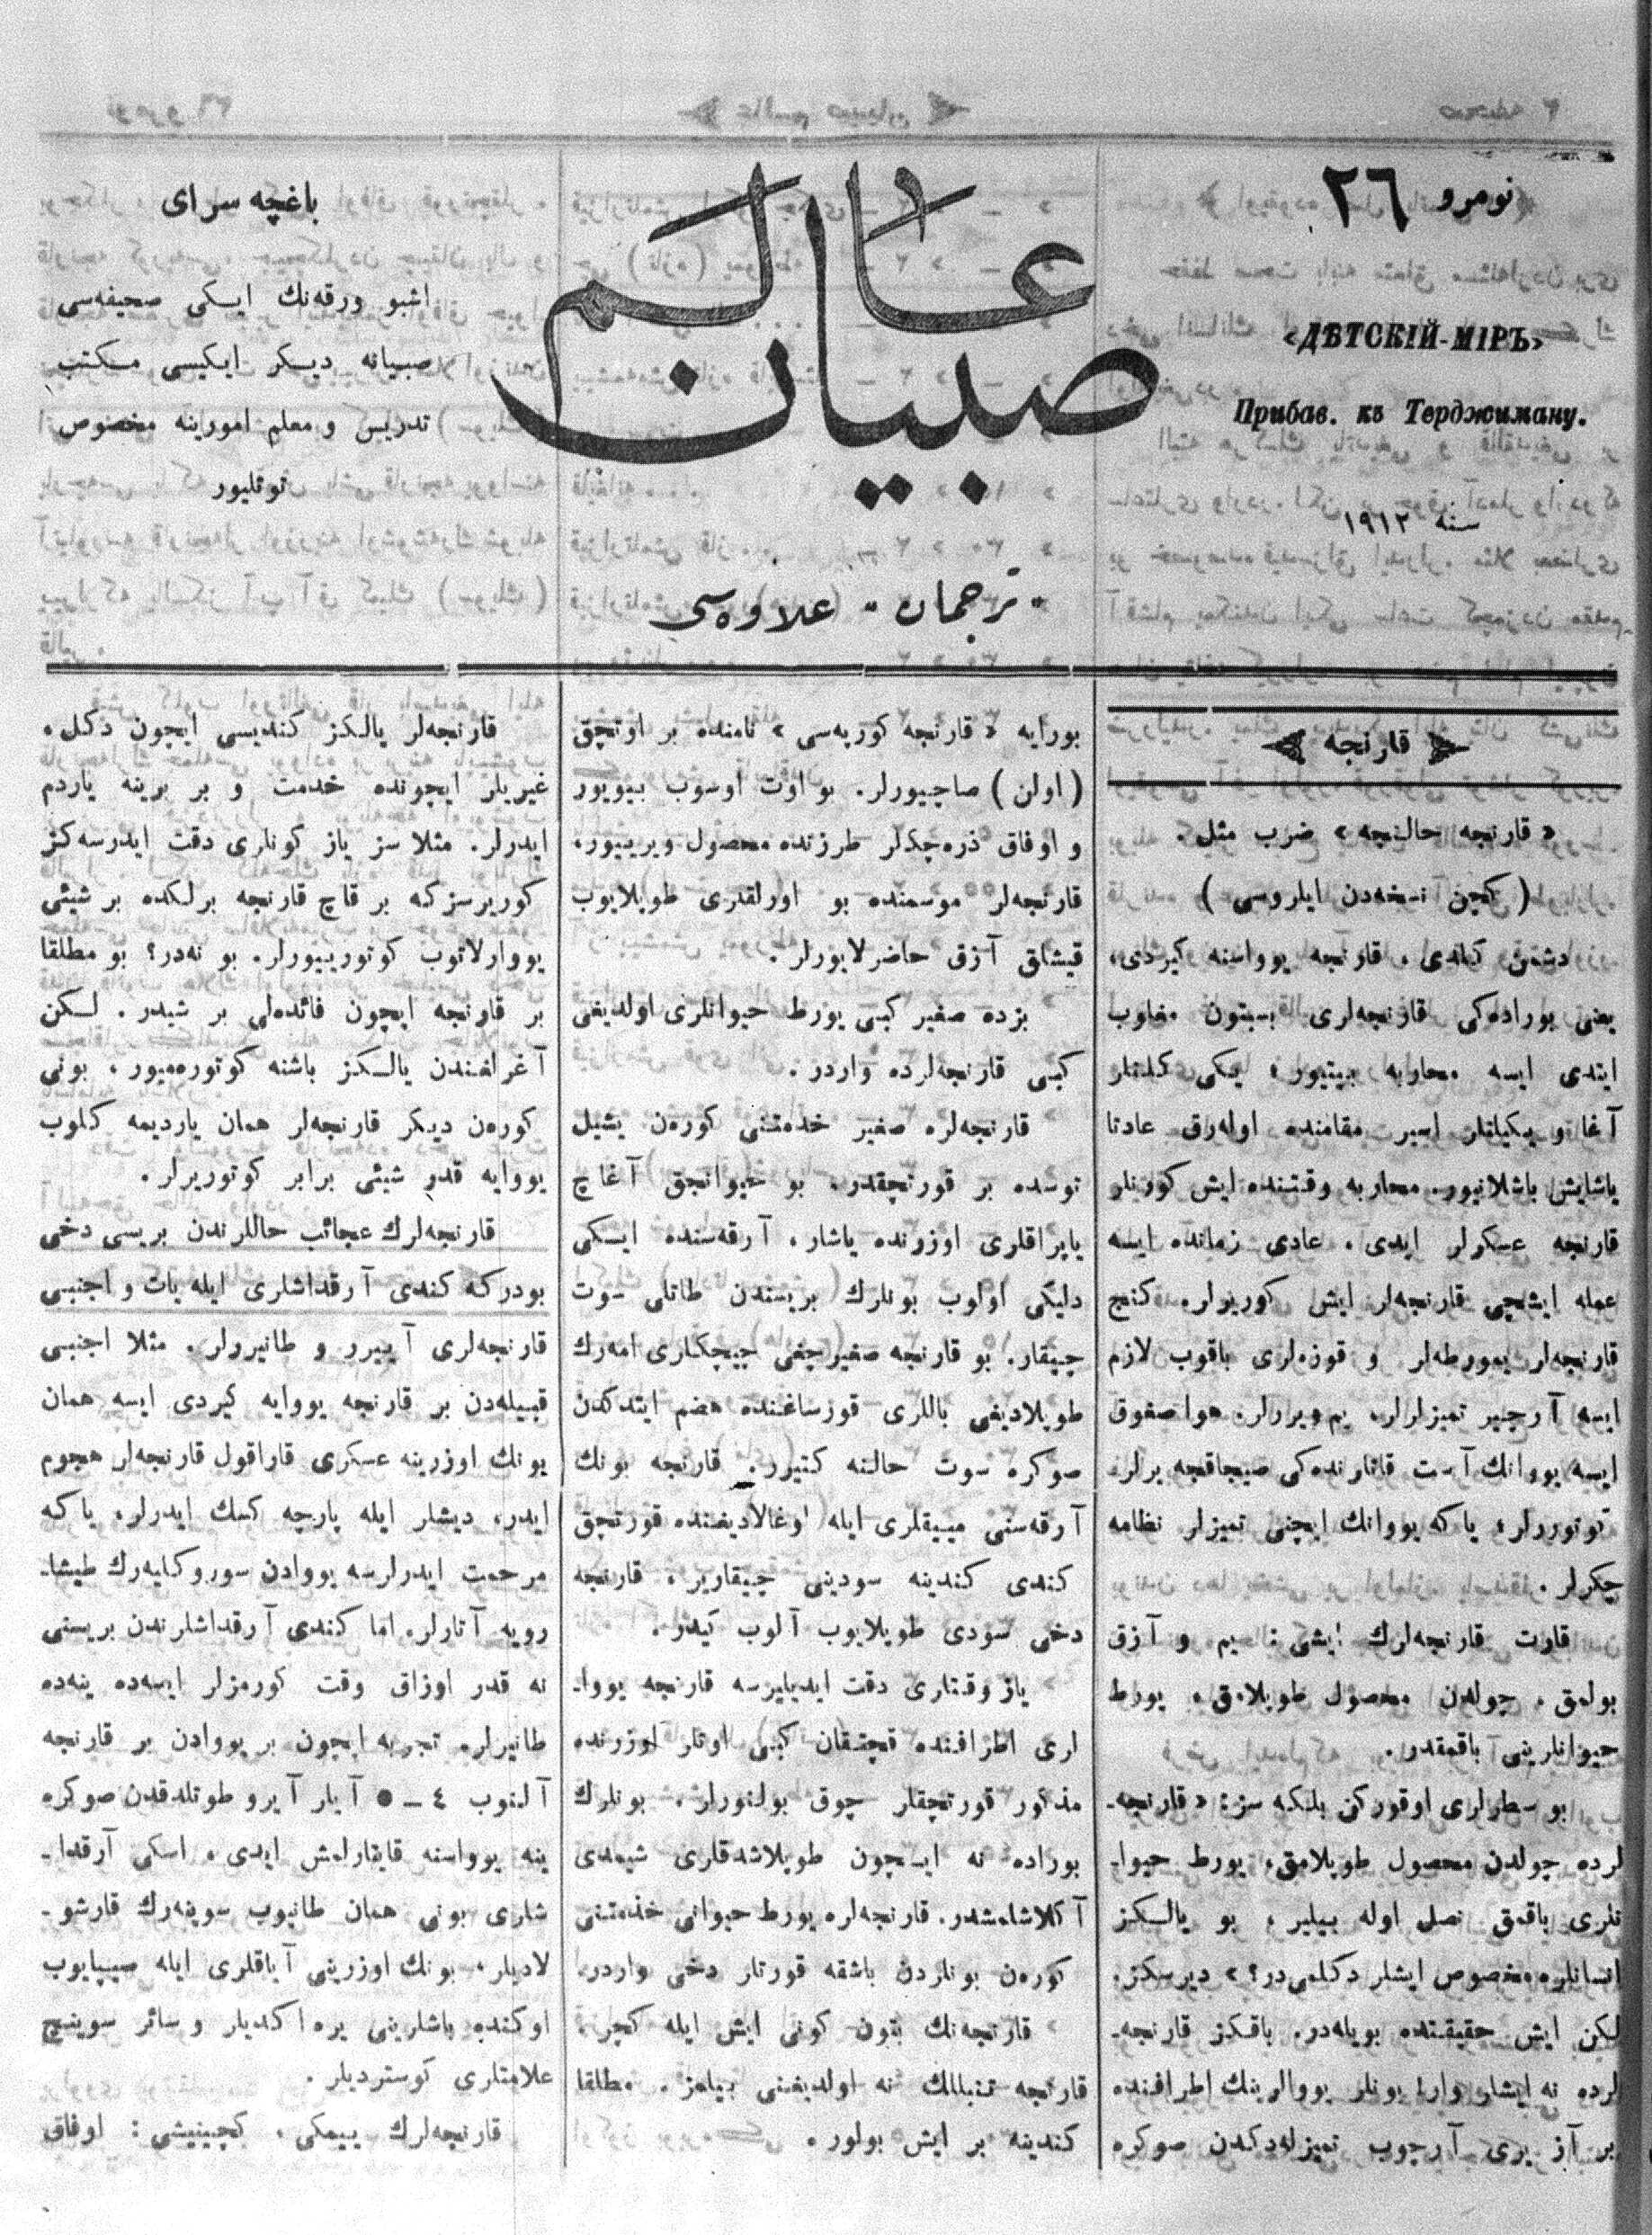 نومرو ٢٦
«ДѢТСКІЙ-МІРЪ»
Прибав. къ Терджиману.
سنه ١٩١٢
عالم صبيان
„ ترجمان „ علاوه‌سى
باغچه سراى
اشبو ورقه‌نك ايكى صحيفه‌سى
صبيانه ديكر ايكيسى مكتب
تدريس و معلم امورينه مخصوص
توتليور
قارنجه
« قارنجه حالنجه » ضرب مثل .
( كچن نسخه‌دن ايلروسى )
دشمن كلدى ، قارنجه يوواسنه كيردى،
يعنى بوراده‌كى قارنجه‌لرى بسبتون مغلوب
ايتدى ايسه محاربه بيتيور؛ يكى كلنلر
آغا و يكيلنلر اسير مقامنده اوله‌رق عادتا
ياشايش باشلانيور. محاربه وقتنده ايش كورنلر
قارنجه عسكرلر ايدى . عادى زمانده ايسه
عمله ايشجى قارنجه‌لر ايش كوريرلر. كنج
قارنجه‌لر يمورطه‌لر و قوزه‌لرى باقوب لازم
ايسه آرچير تميزلرلر، يم ويررلر. هوا صغوق
ايسه يووانك آست قاتلرنده‌كى صيجاقجه يرلرد
توتوررلر؛ ياكه يووانك ايچنى تميزلر نظامه
چكرلر .
قارت قارنجه‌لرك ايشى : يم و آزق
بولمق ، چولدن محصول طوپلامق ، يورط
حيوانلرينى باقمقدر .
بو سطرلرى اوقوركن بلكه سز: « قارنجه-
لرده چولدن محصول طوپلامق، يورط حيوا-
نلرى باقمق نصل اوله بيلير ، بو يالكز
انسانلره مخصوص ايشلر دكلمى‌در؟ » ديرسكز.
ليكن ايش حقيقتده بويله‌در. باقكز قارنجه-
لرده نه ايشلر وار! بونلر يووالرينك اطرافنده
بر آز يرى آرچوب تميزله‌دكدن صوكره
بورايه « قارنجه كوريه‌سى » نامنده بر اوتچق
( اولن ) صاچيورلر. بو اوت اوسوب بيويور
و اوفاق ذره‌چكلر طرزنده محصول ويرييور،
قارنجه‌لر موسمنده بو اورلقلرى طوپلايوب
قيشلق آزق حاضرلايورلر .
بزده صغير كبى يورط حيوانلرى اولديغى
كبى قارنجه‌لرده واردر .
قارنجه‌لره صغير خدمتنى كورن يشيل
توسده بر قورتچقدر. بو حيوانجق آغاچ
ياپراقلرى اوزرنده ياشار ، آرقه‌سنده ايكى
دليكى اولوب بونلرك بريسندن طاتلى سوت
چيقار. بو قارنجه صغيرجغى چيچكلرى امه‌رك
طوپلاديغى باللرى قورساغنده هضم ايتدكدن
صوكره سوت حالنه كتيرر. قارنجه بونك
آرقه‌سنى ميقلرى ايله اوغالاديغنده قورتچق
كندى كندينه سودينى چيقارير ، قارنجه
دخى سودى طوپلايوب آلوب كيدر .
ياز وقتلرى دقت ايديليرسه قارنجه يووا-
لرى اطرافنده قچتقان كبى اوتلر اوزرنده
مذكور قورتچقلر چوق بولنورلر . بونلرك
بوراده نه ايچون طوپلاشدقلرى شيمدى
آكلاشلمشدر. قارنجه‌لره يورط حيوانى خدمتنى
كورن بونلردن باشقه قورتلر دخى واردر.
قارنجه‌نك بتون كونى ايش ايله كچر .
قارنجه تنبللك نه اولديغنى بيلمز . مطلقا
كندينه بر ايش بولور .
قارنجه‌لر يالكز كنديسى ايچون دكل،
غيريلر ايچونده خدمت و بر برينه ياردم
ايدرلر. مثلا سز ياز كونلرى دقت ايدرسه‌كز
كوريرسز كه بر قاچ قارنجه برلكده بر شيئى
يووارلاتوب كوتورييورلر. بو نه‌در؟ بو مطلقا
بر قارنجه ايچون فائده‌لى بر شيدر . لكن
آغرلغندن يالكز باشنه كوتوره‌ميور ، بونى
كورن ديكر قارنجه‌لر همان يارديمه كلوب
يووايه قدر شيئى برابر كوتوريرلر .
قارنجه‌لرك عجائب حاللرندن بريسى دخى
بودر كه كندى آرقداشلرى ايله يات و اجنبى
قارنجه‌لرى آييرر و طانيرلر . مثلا اجنبى
قبيله‌دن بر قارنجه يووايه كيردى ايسه همان
بونك اوزرينه عسكرى قاراقول قارنجه‌لر هجوم
ايدر، ديشلر ايله پارچه كسك ايدرلر، ياكه
مرحمت ايدرلرسه يووادن سوروكليه‌رك طيشا-
رويه آتارلر. اما كندى آرقداشلرندن بريسنى
نه قدر اوزاق وقت كورمزلر ايسه‌ده ينه‌ده
طانيرلر. تجربه ايچون بر يووادن بر قارنجه
آلنوب ٤ — ٥ آيلر آيرو طوتلدقدن صوكره
ينه يوواسنه قايتارلمش ايدى . اسكى آرقدا-
شلرى بونى همان طانيوب سوينه‌رك قارشو-
لاديلر ، بونك اوزرينى آياقلرى ايله سيپايوب
اوكنده باشلرينى يره اكديلر و سائر سوينچ
علامتلرى كوسترديلر .
قارنجه‌لرك ييمكى ، كچينيشى : اوفاق